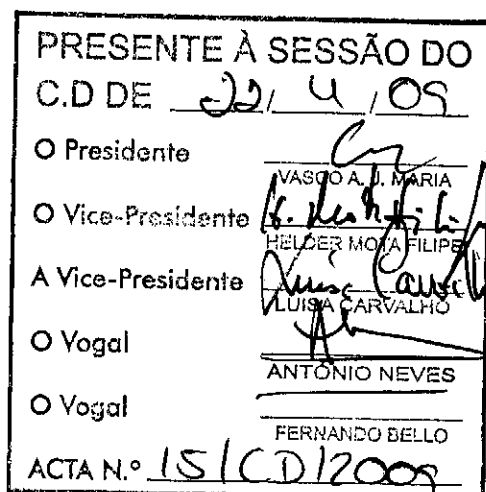 PRESENTE À SESSÃO DO
C.D DE 22/ 4 /09
O Presidente
VASCO A. J. MARIA
O Vice-Presidente
HELDER MOTA FILIPE
A Vice-Presidente Luisa Carvalho
LUISA CARVALHO
O Vogal
ANTÓNIO NEVES
O Vogal
FERNANDO BELLO
ACTA N.º 15/CD/2009